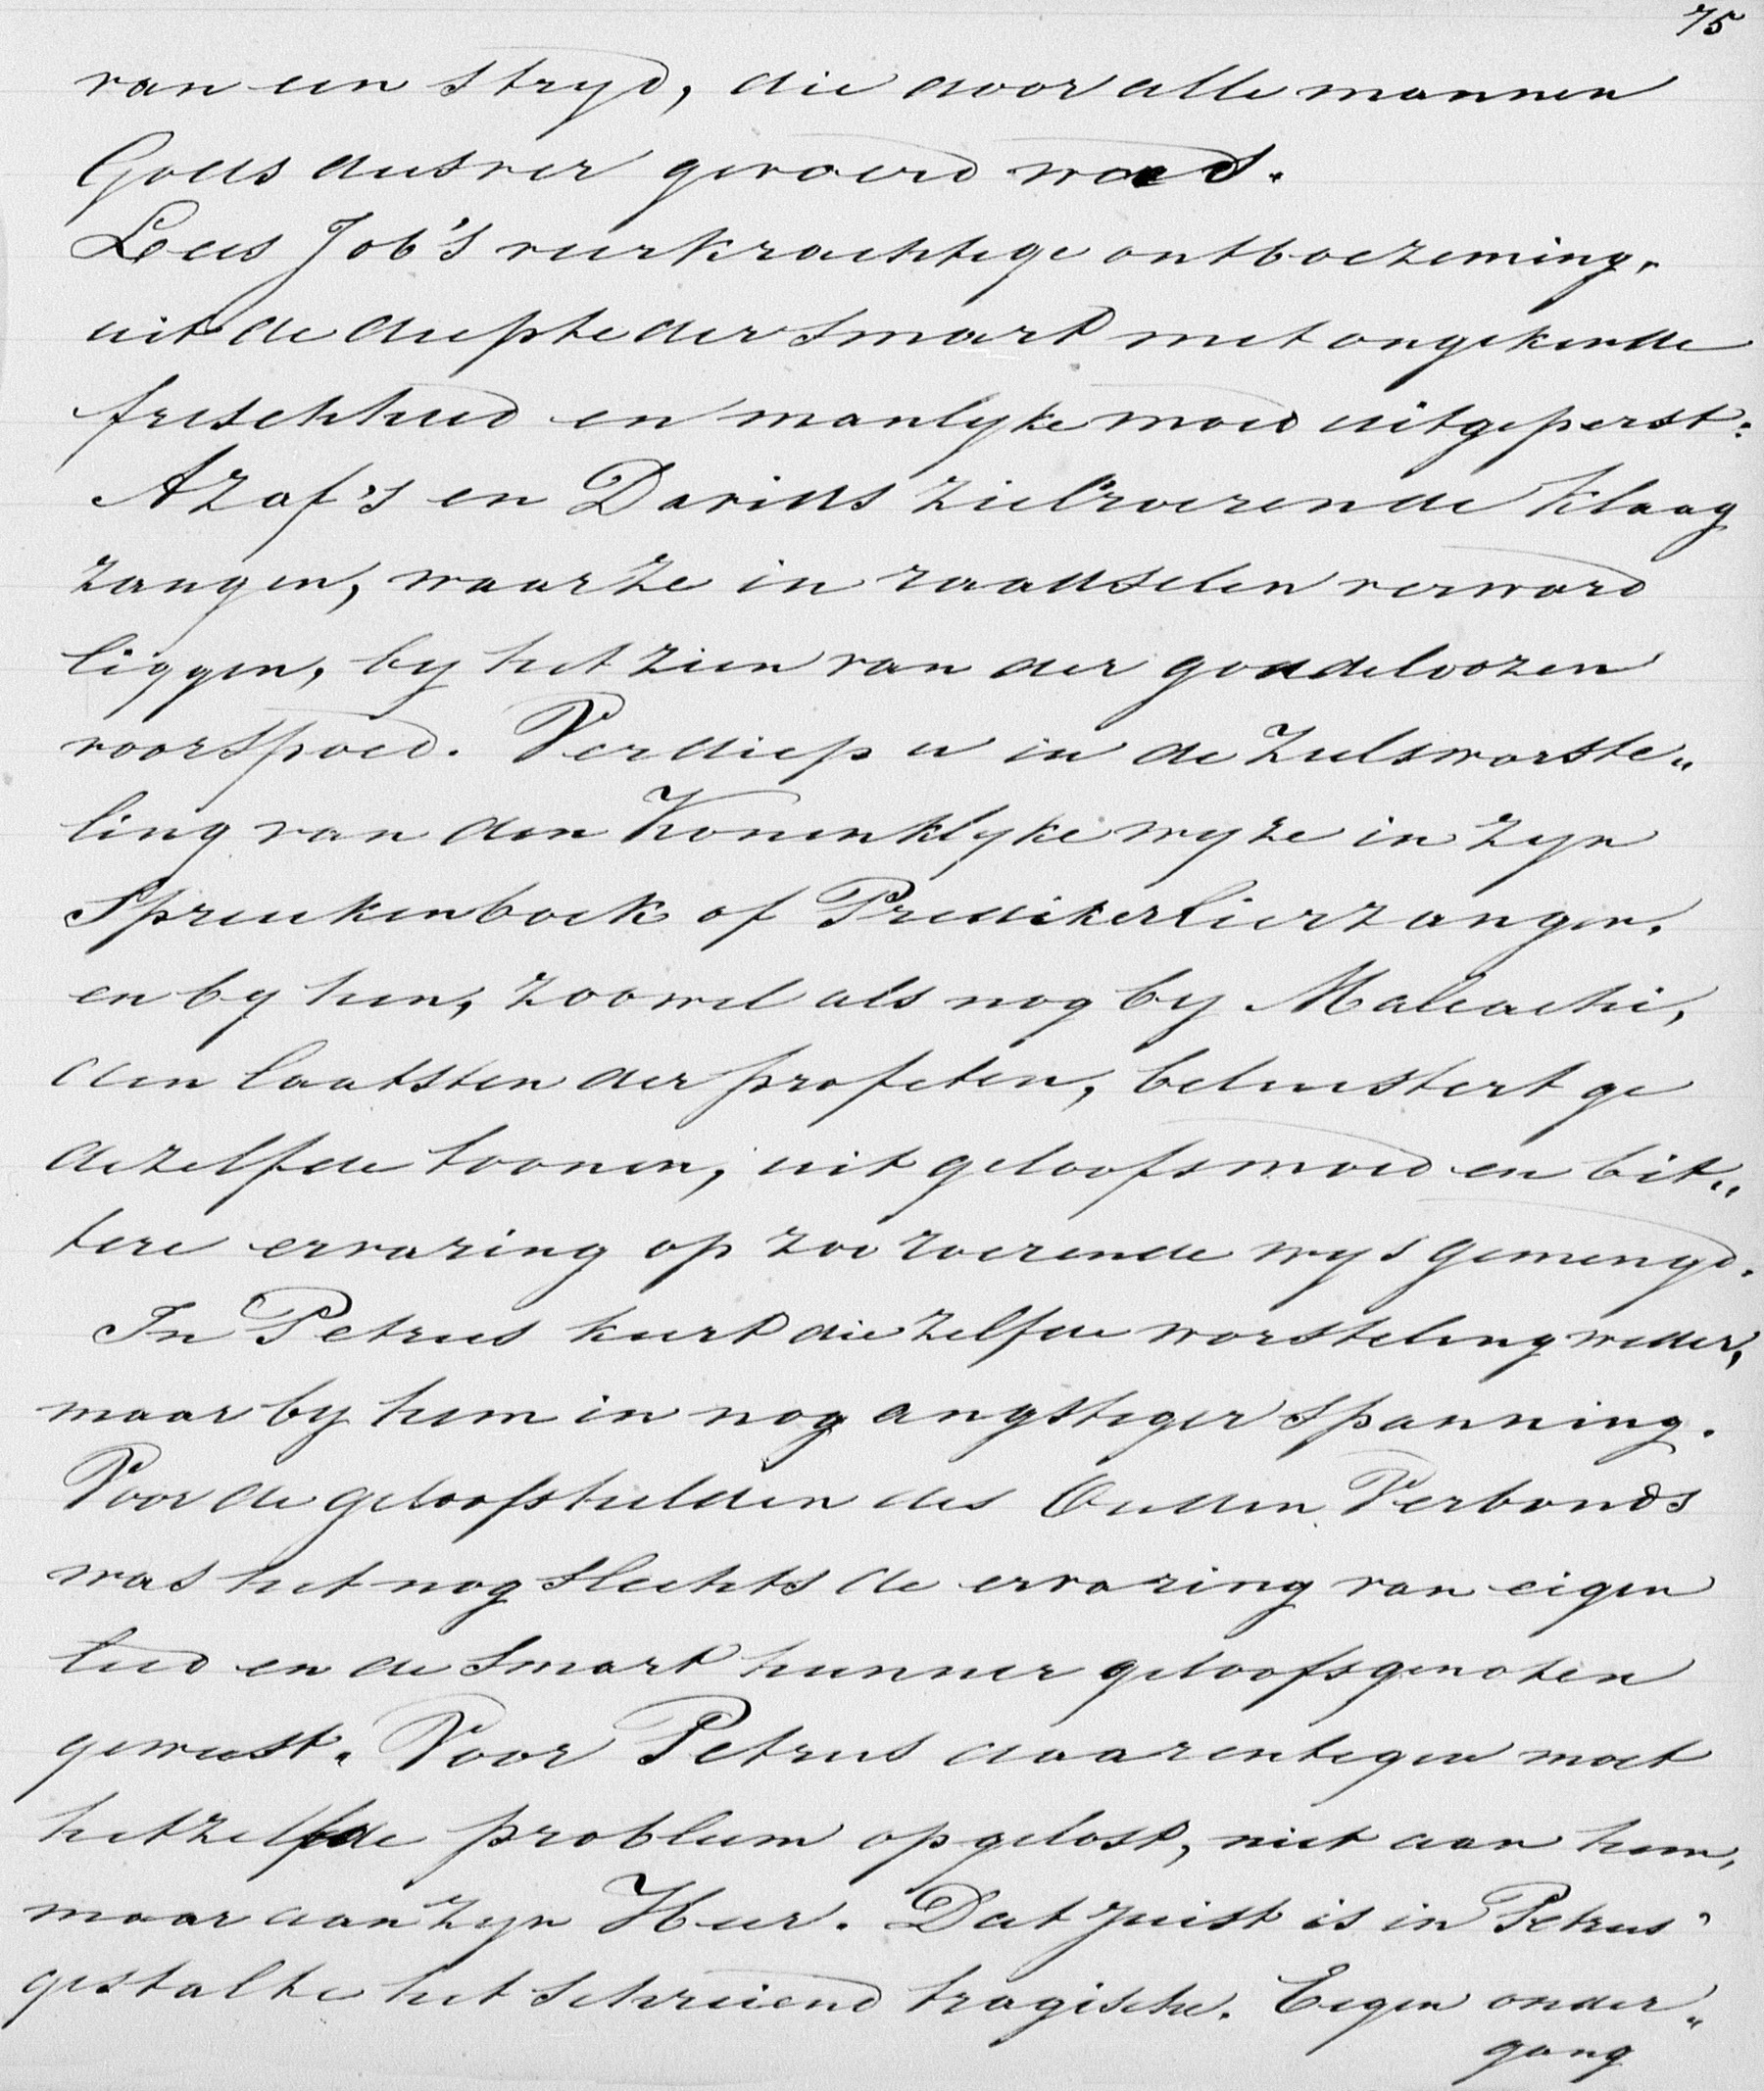 75
van een stryd, die door alle mannen
Gods dusver gevoerd werd.
Lees Job's veerkrachtige ontboezeming,
uit de diepte der smart met ongekende
frischheid en manlyke moed uitgeperst:
Azaf's en Davids zielroerende klaag
zangen, waar ze in raadselen verward
liggen, by het zien van der goddeloozen
voorspoed. Verdiep u in de zielsworste„
ling van den Koninklyke wyze in zyn
Spreukenboek of Predikerlierzangen,
en by hen, zoowel als nog by Maleachi,
den laatsten der profeten, beluistert ge
dezelfde toonen, uit geloofsmoed en bit„
tere ervaring op zoo roerende wys gemengd.
In Petrus keert diezelfde worsteling weder,
maar by hem in nog angstiger spanning.
Voor de geloofshelden des Ouden Verbonds
was het nog slechts de ervaring van eigen
leed en de smart hunner geloofsgenoten
geweest. Voor Petrus daarentegen moet
hetzelfde probleem opgelost, niet aan hem,
maar aan zyn Heer. Dat juist is in Petrus'
gestalte het schreiend tragische. Eigen onder„
gang